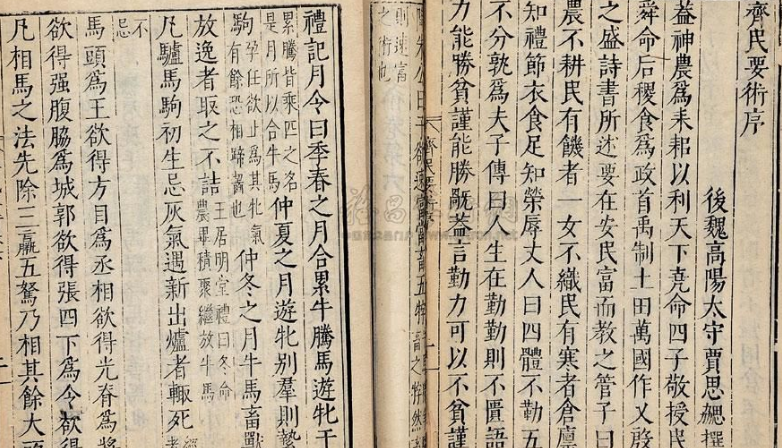 齊民要術序
後魏高陽太守賈思勰撰
蓋神農為耒耜以利天下堯命四子敬授
舜命后稷食為政首禹制土田萬國作乂
之盛詩書所述要在安民富而教之管子曰
農不耕民有饑者一女不織民有寒者倉廩
知禮節衣食足知榮辱丈人曰四體不勤五
不分孰為夫子傳曰人生在勤勤則不匱語
力能勝貧謹能勝禍蓋言勤力可以不貧謹
齊民要術序
朱公曰子欲速富當畜五牸
則速富
之術也
禮記月令曰季春之月合累牛騰馬遊牝于
累騰皆乘匹之名
是月所以合牛馬
仲夏之月遊牝別羣則縶
駒
孕任欲止為其牝氣
有餘恐相蹄齧也
仲冬之月牛馬畜獸
放逸者取之不詰
王居明堂禮曰冬命
農畢積聚繼放牛馬
凡驢馬駒初生忌灰氣遇新出爐者輒死
經
不
忌
馬頭為王欲得方目為丞相欲得光脊為將
欲得强腹脇為城郭欲得張四下為令欲得
凡相馬之法先除三羸五駑乃相其餘大頭